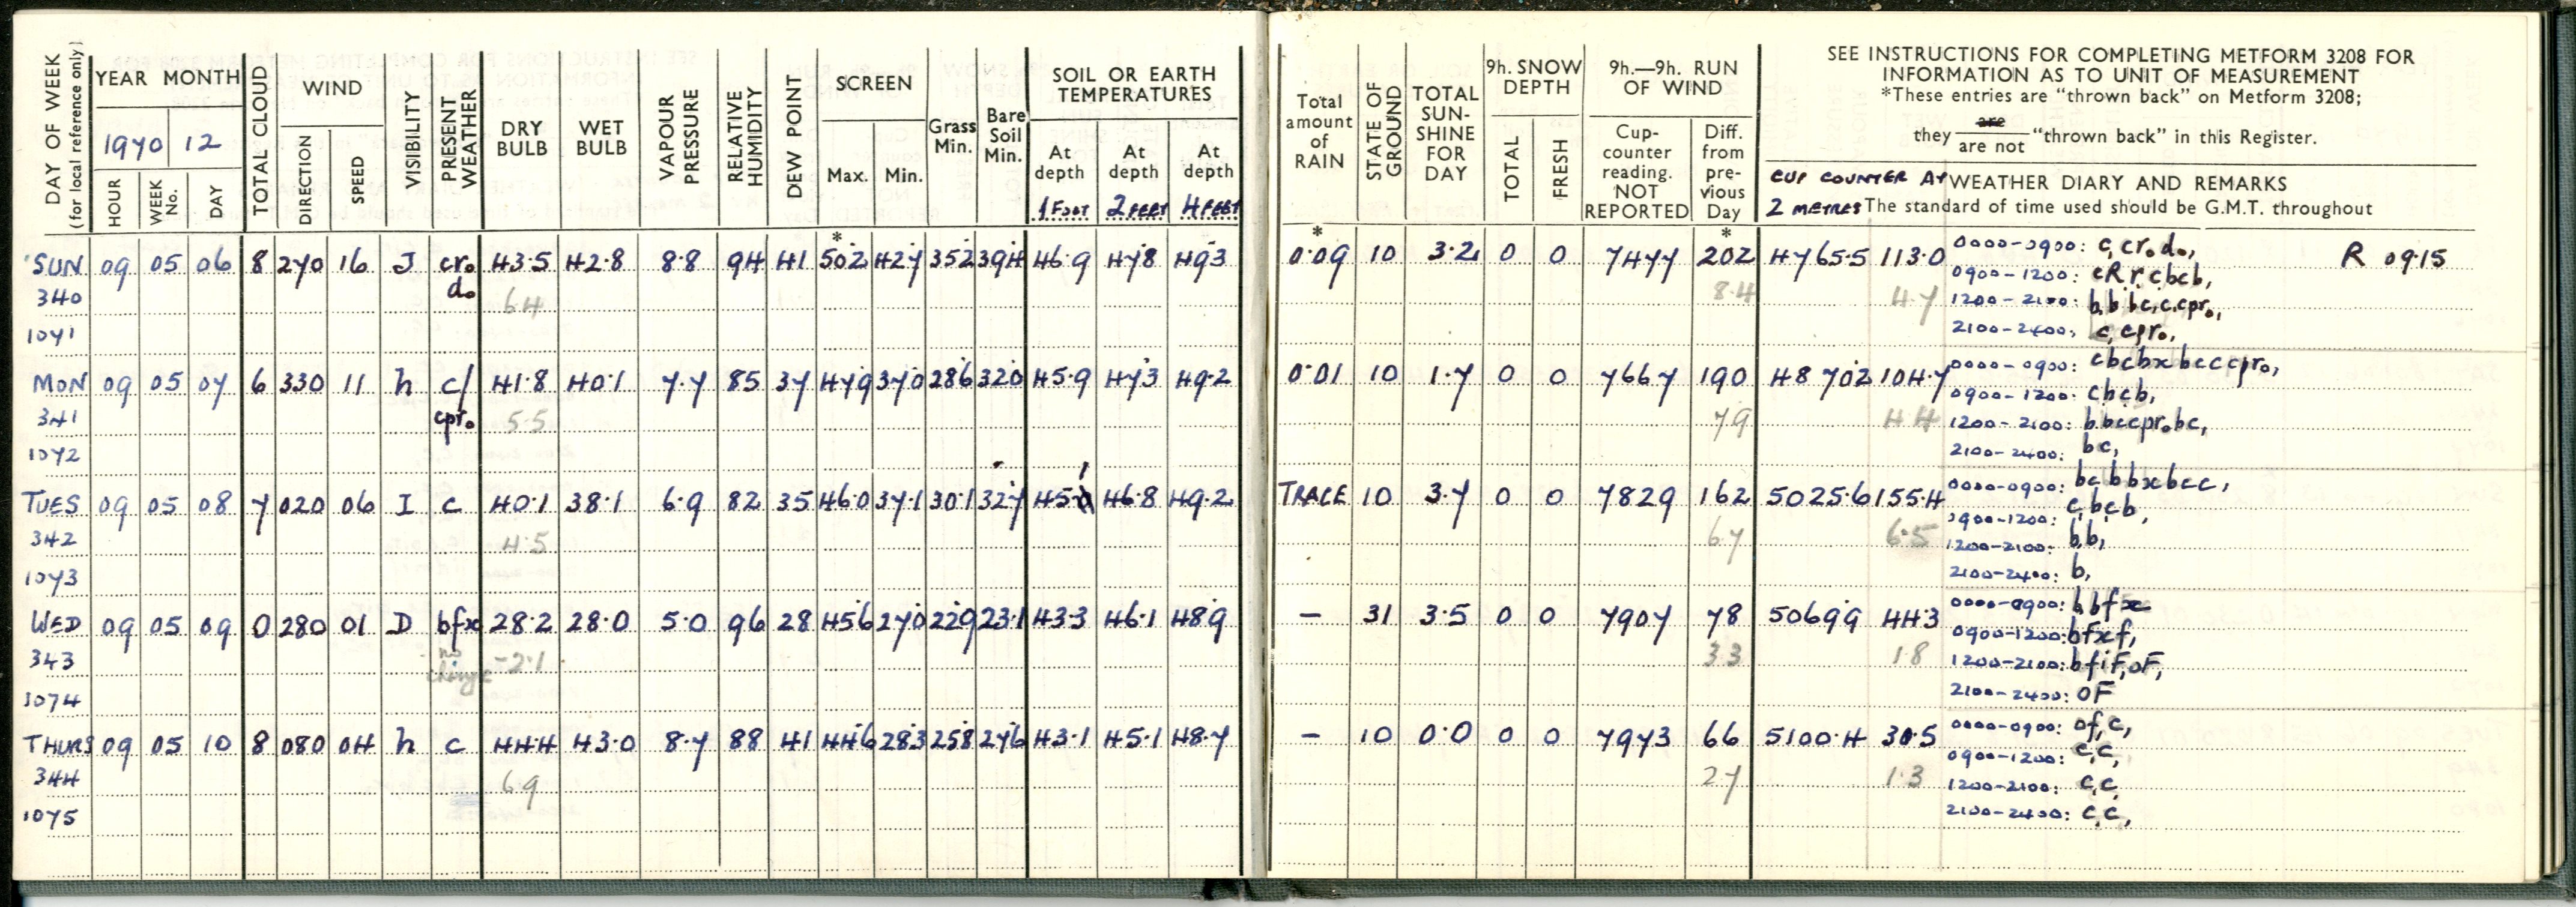 DAY OF WEEK
(for local reference only)
YEAR MONTH
1970 12
HOUR WEEK No. DAY
TOTAL CLOUD
WIND
DIRECTION SPEED
VISIBILITY
PRESENT WEATHER
DRY BULB
WET BULB
VAPOUR PRESSURE
RELATIVE HUMIDITY
DEW POINT
SCREEN
Max. Min.
Grass Min.
Bare Soil Min.
SOIL OR EARTH TEMPERATURES
At depth 1 FOOT
At depth 2 FEET
At depth 4 FEET
Total amount of RAIN
STATE OF GROUND
TOTAL SUN-SHINE FOR DAY
9h. SNOW DEPTH
TOTAL FRESH
9h.—9h. RUN OF WIND
Cup-counter reading. NOT REPORTED
Diff. from pre-vious Day
SEE INSTRUCTIONS FOR COMPLETING METFORM 3208 FOR
INFORMATION AS TO UNIT OF MEASUREMENT
*These entries are "thrown back" on Metform 3208;
they are / are not "thrown back" in this Register.
CUP COUNTER AT WEATHER DIARY AND REMARKS
2 METRES The standard of time used should be G.M.T. throughout
SUN 09 05 06 8 270 16 J cr₀ 43.5 42.8 8.8 94 41 *50.2 42.7 35.2 39.4 46.9 47.8 49.3 *0.09 10 3.2 0 0 7477 *202 4765.5 113.0 0000-0900: c,cr₀d₀, R 0915
d₀ 0900-1200: cRr,cbcb,
340 6.4 8.4 4.7 1200-2100: b,b bc,c,cpr₀,
1071 2100-2400: c,cpr₀,
MON 09 05 07 6 330 11 h c/ 41.8 40.1 7.7 85 37 47.9 37.0 28.6 32.0 45.9 47.3 49.2 0.01 10 1.7 0 0 7667 190 4870.2 104.7 0000-0900: cbcbxbcccpr₀,
0900-1200: cbcb,
341 cpr₀ 5.5 7.9 4.4 1200-2100: b,bccpr₀bc,
1072 2100-2400: bc,
TUES 09 05 08 7 020 06 I c 40.1 38.1 6.9 82 35 46.0 37.1 30.1 32.7 45.1 46.8 49.2 TRACE 10 3.7 0 0 7829 162 5025.6 155.4 0000-0900: bcbbxbcc,
0900-1200: c,bcb,
342 4.5 6.7 6.5 1200-2100: b,b,
1073 2100-2400: b,
WED 09 05 09 0 280 01 D bfx 28.2 28.0 5.0 96 28 45.6 27.0 22.9 23.1 43.3 46.1 48.9 – 31 3.5 0 0 7907 78 5069.9 44.3 0000-0900: b,bfx
0900-1200: bfxf,
343 no change -2.1 3.3 1.8 1200-2100: bfiF,oF,
1074 2100-2400: oF
THURS 09 05 10 8 080 04 h c 44.4 43.0 8.7 88 41 44.6 28.3 25.8 27.6 43.1 45.1 48.7 – 10 0.0 0 0 7973 66 5100.4 30.5 0000-0900: of,c,
0900-1200: c,c,
344 6.9 2.7 1.3 1200-2100: c,c,
1075 2100-2400: c,c,